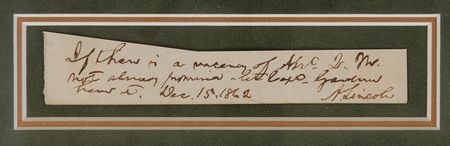 If there is a vacancy of Asst. Q. M.
not already nomina - let Capt. Gardner
have it. Dec. 15, 1862 A Lincoln